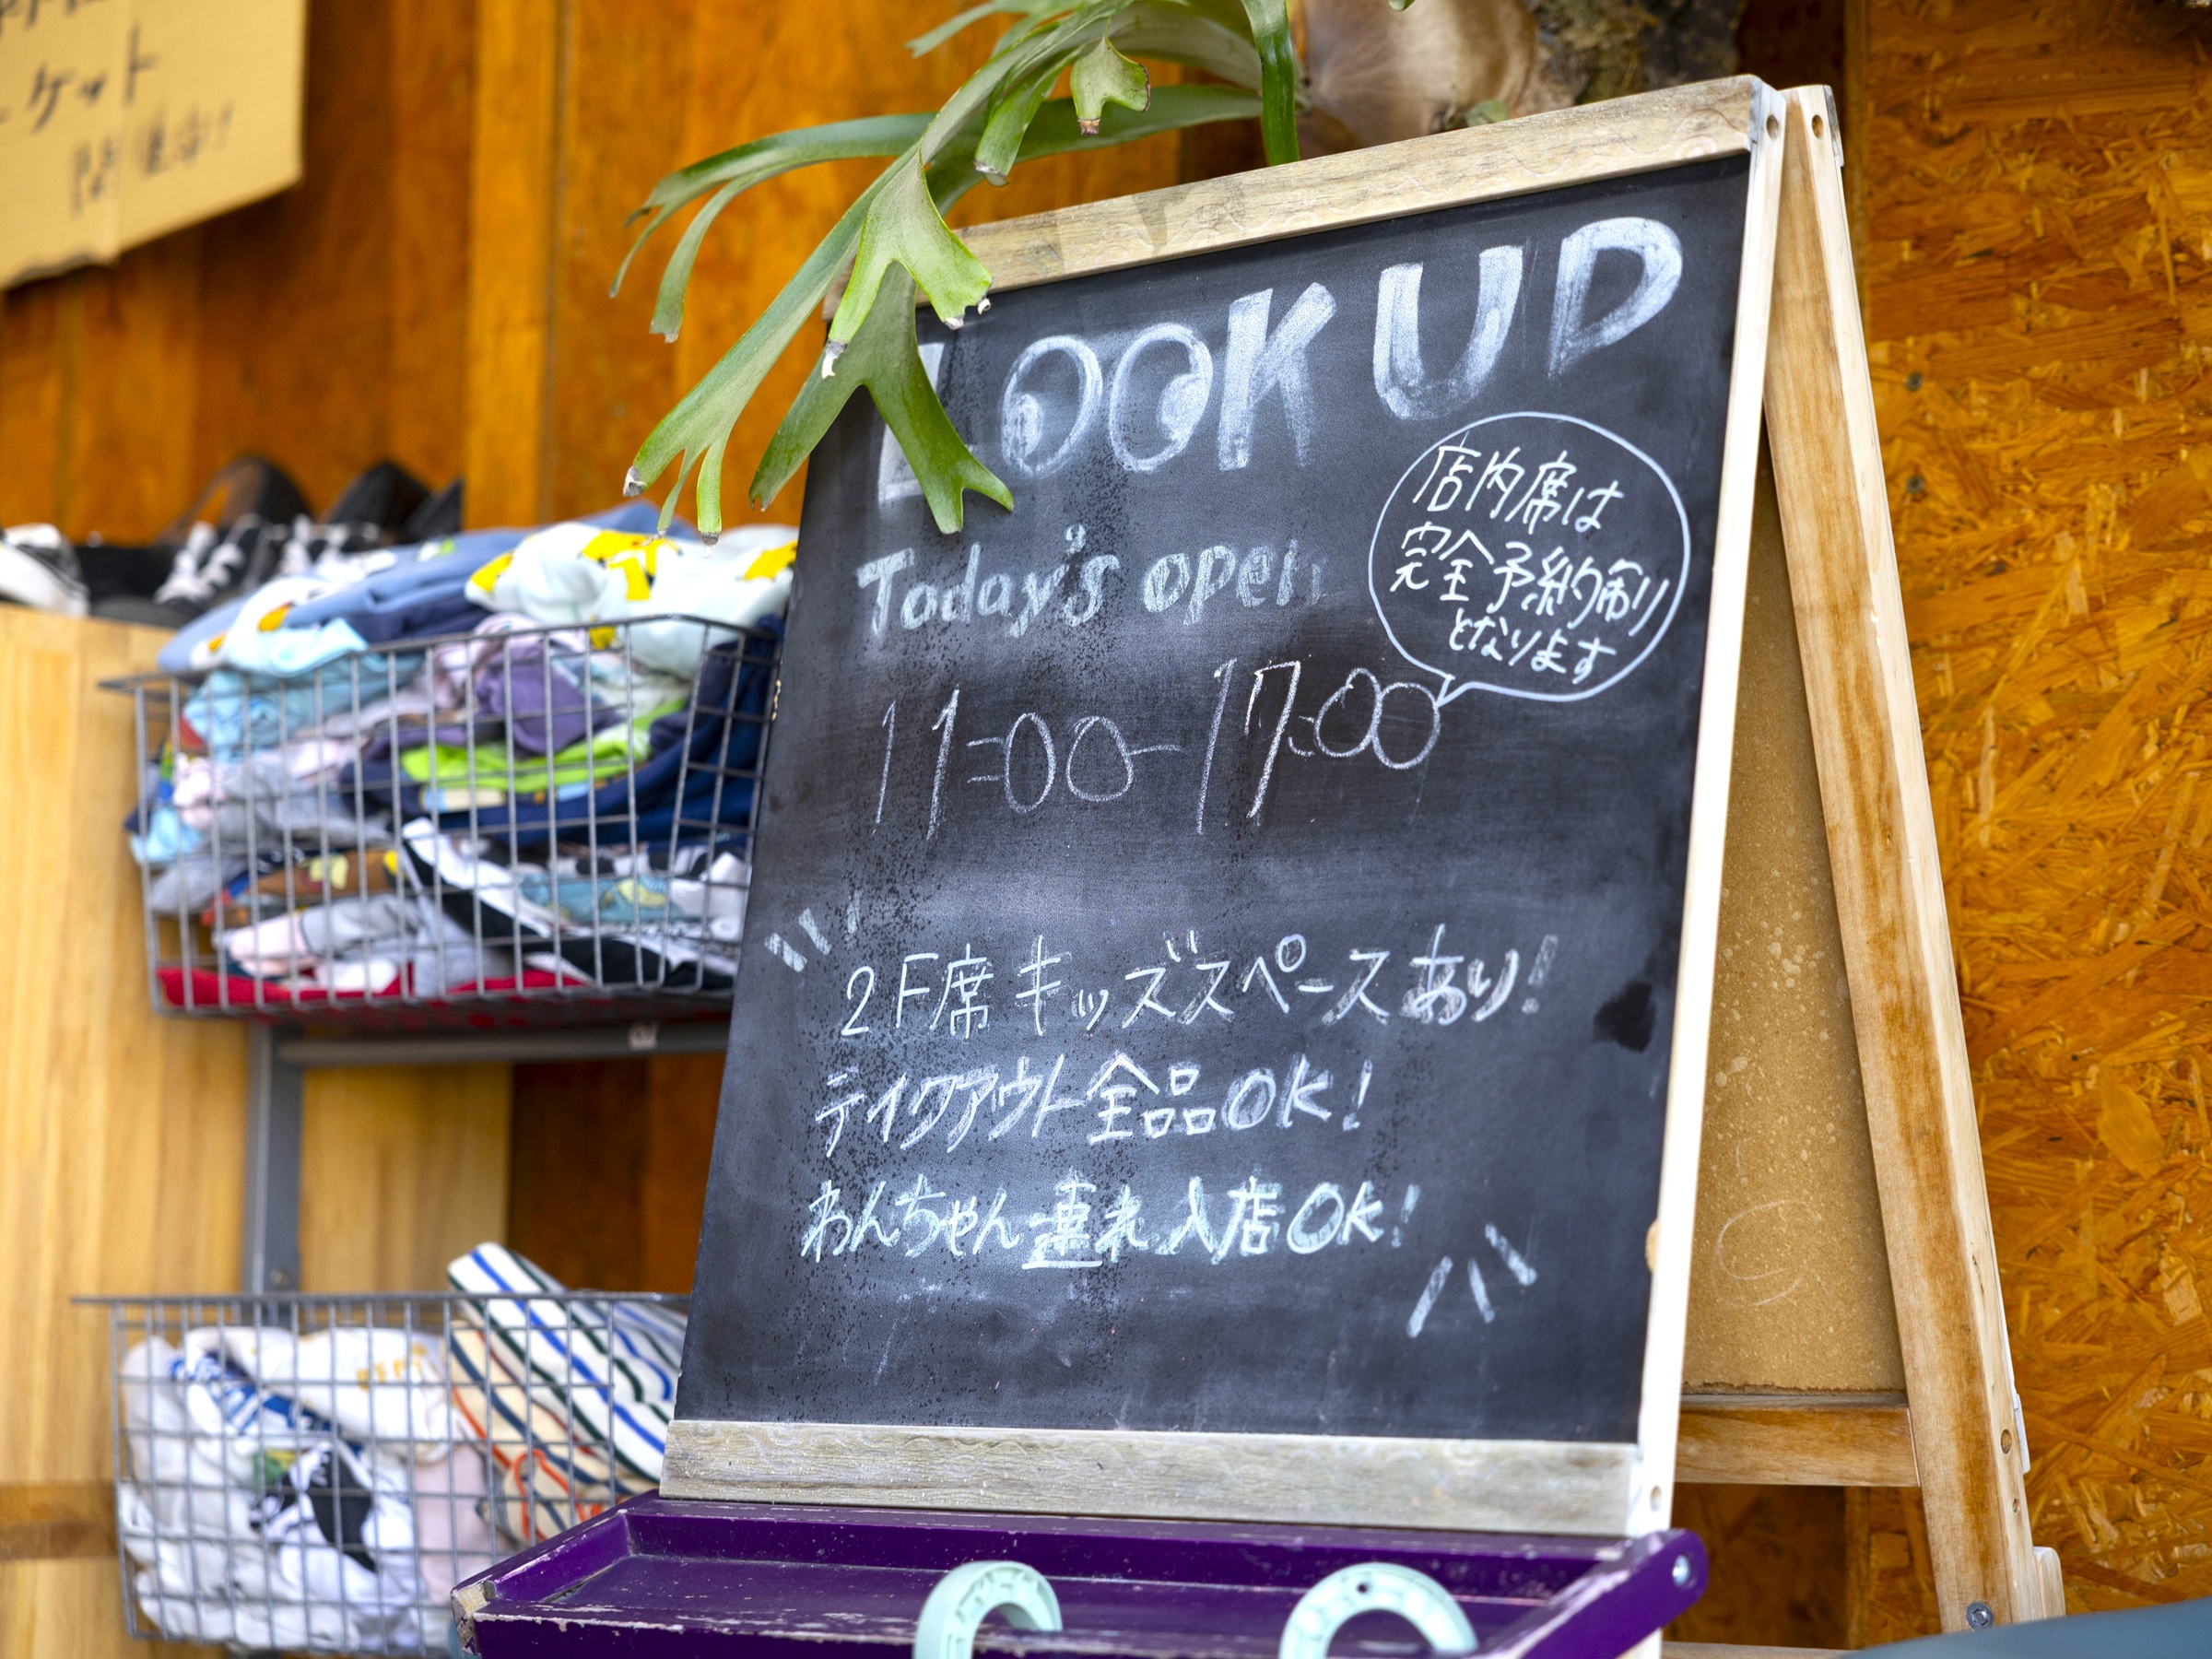 ケット
開催店!
LOOK UP
Today's open
店内席は
完全予約制
となります
11:00-17:00
2F席 キッズスペースあり!
テイクアウト全品OK!
わんちゃん連れ入店OK!